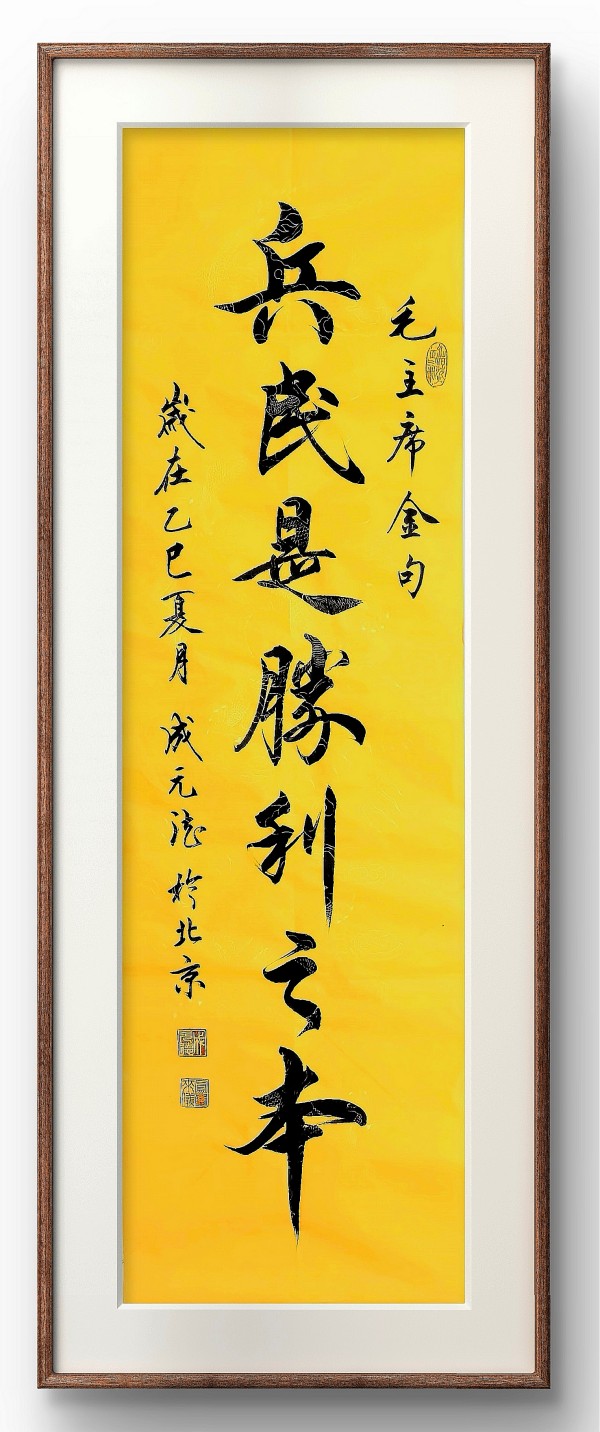 毛主席金句
兵民是勝利之本
歲在乙巳夏月 成元德於北京